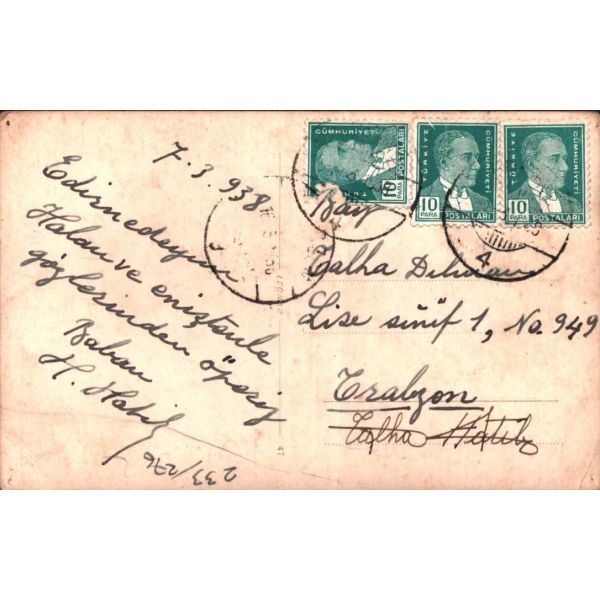 7.3.938
Edirnedeyim
Halan ve eniştenle
gözlerinden öperiz
Baban
H. Hatib
233/276
CÜMHURİYETİ
10 PARA
POSTALARI
TÜRKİYE
CÜMHURİYETİ
10 PARA POSTALARI
TÜRKİYE
CÜMHURİYETİ
10 PARA POSTALARI
4
4
Bay
Talha
Lise sınıf 1, No. 949
Trabzon
Talha Hatib
47